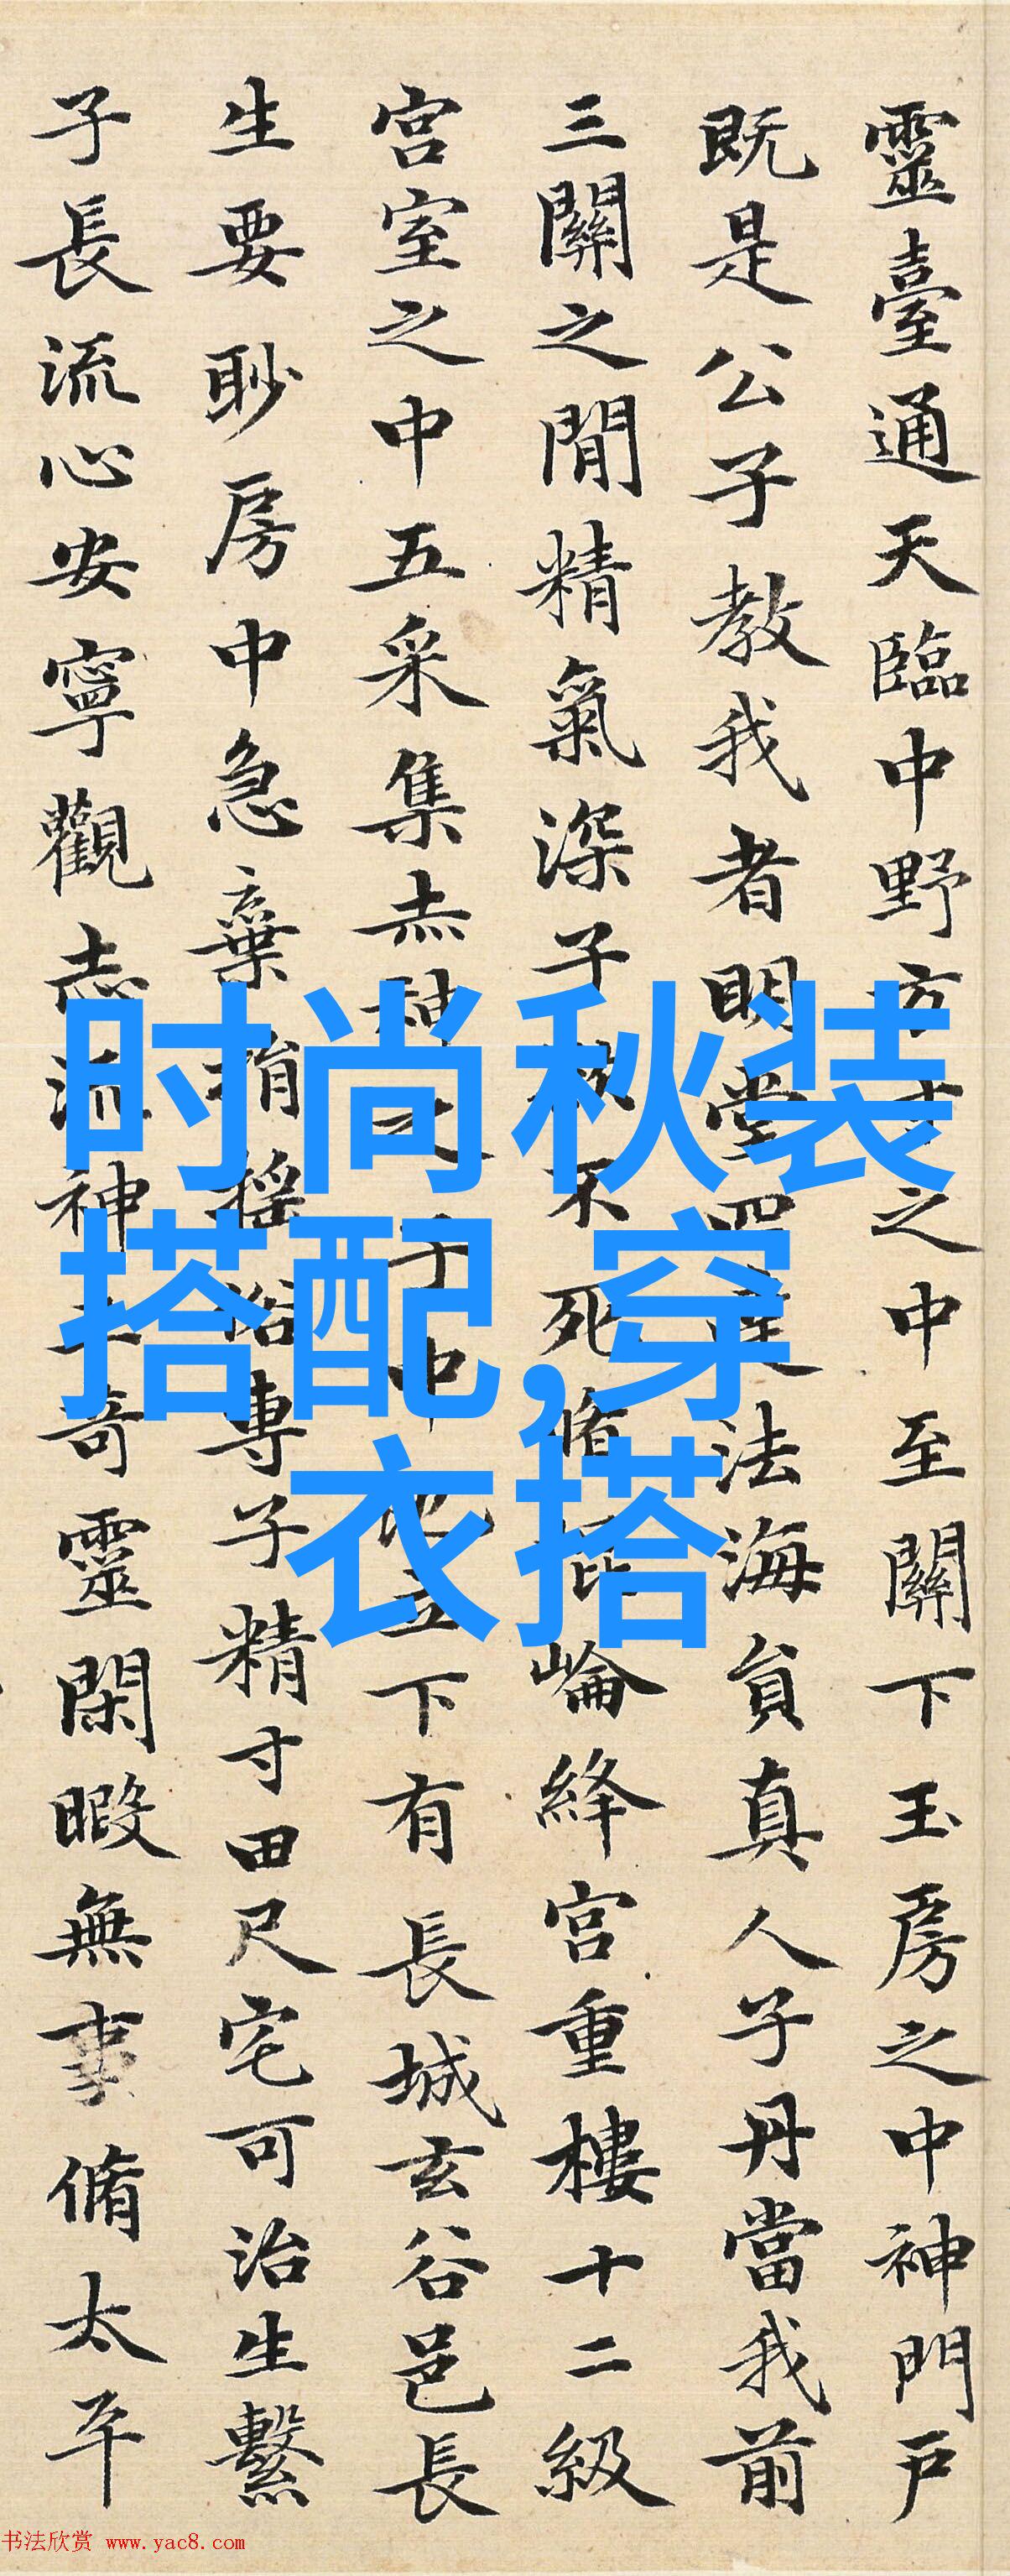 靈臺通天臨中野方寸之中至關下玉房之中神門戶
既是公子教我者明堂四達法海員真人子丹當我前
三關之閒精氣深子欲不死脩崐崘絳宮重樓十二級
宮室之中五采集赤神之子中池立下有長城玄谷邑長
生要眇房中急棄捐搖俗專子精寸田尺宅可治生繫
子長流心安寧觀志流神三奇靈閑暇無事脩太平
时尚秋装
搭配,穿
衣搭
书法欣赏 www.yac8.com